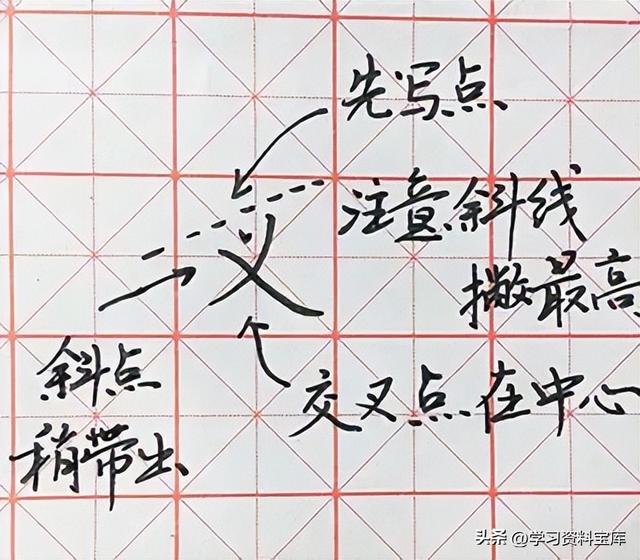 先写点
注意斜线
撇最高
义
斜点
稍带出
交叉点在中心
头条 @学习资料宝库